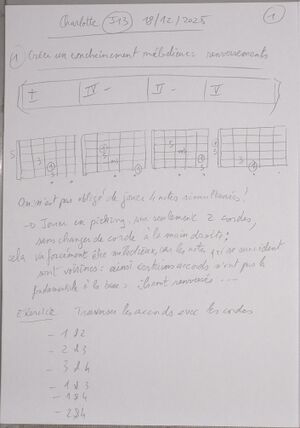 Charlotte J13 18/12/2025 1
1 Créer un enchaînement mélodieux : renversements
I | IV - | II - | V
On n'est pas obligé de jouer 4 notes simultanées !
→ Jouer en picking, sur seulement 2 cordes,
sans changer de corde à la main droite :
cela va forcément être mélodieux, car les notes qui se succèdent
sont voisines : ainsi certains accords n'ont pas la
fondamentale à la basse : ils sont renversés ...
Exercice Traverser les accords avec les cordes
- 1 & 2
- 2 & 3
- 3 & 4
- 1 & 3
- 1 & 4
- 2 & 4